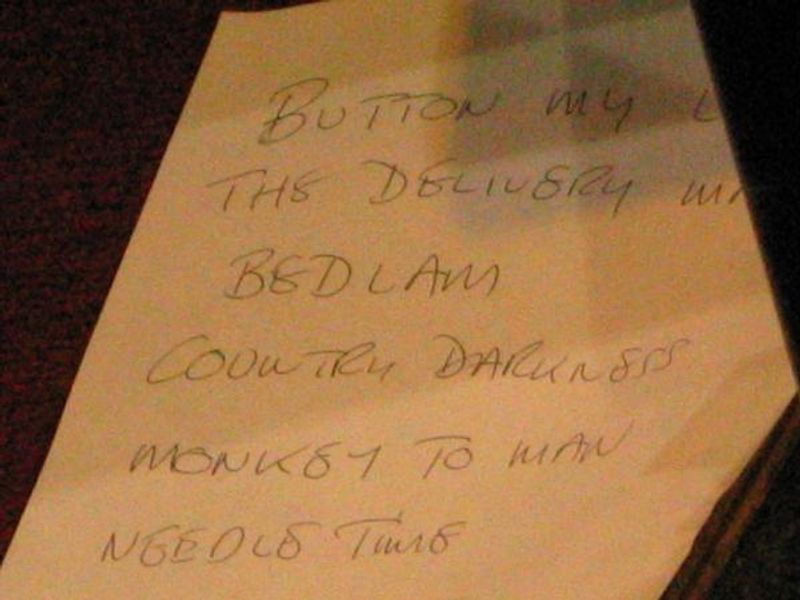 BUTTON MY L
THE DELIVERY MA
BEDLAM
COUNTRY DARKNESS
MONKEY TO MAN
NEEDLE TIME